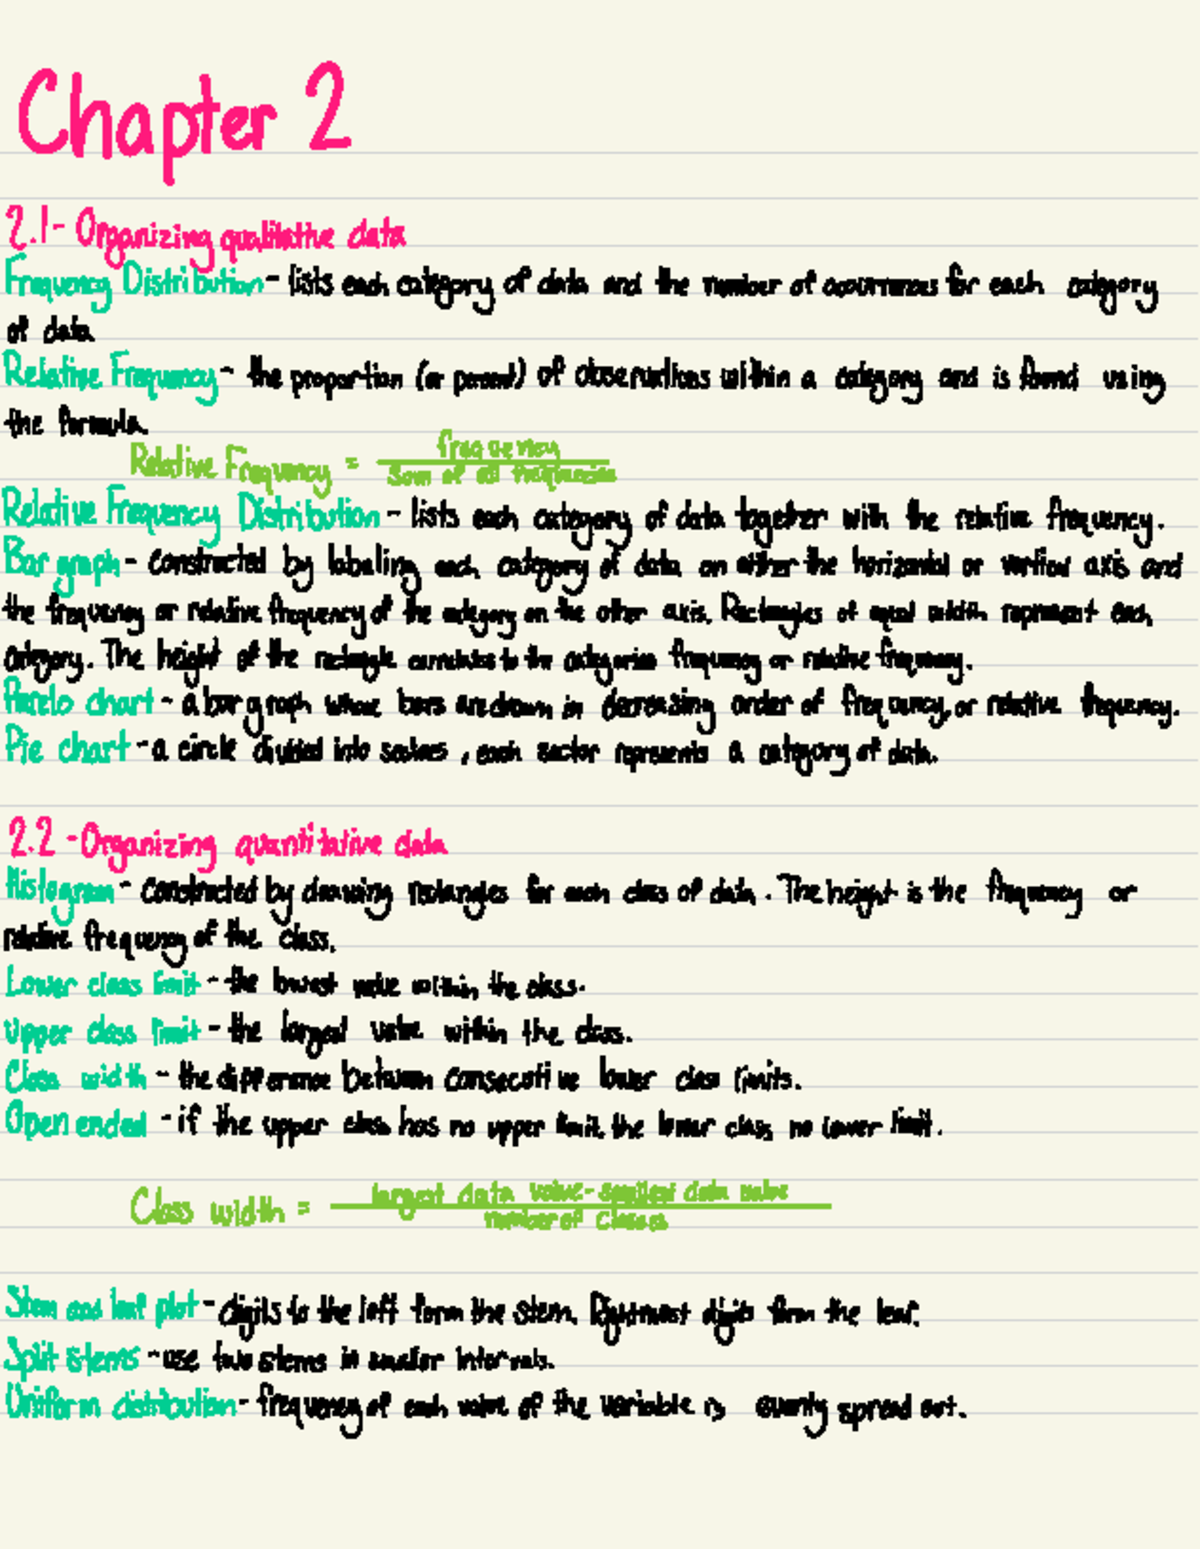 Chapter 2
2.1- Organizing qualitative data
Frequency Distribution - lists each category of data and the number of occurrences for each category
of data
Relative Frequency - the proportion (or percent) of observations within a category and is found using
the formula.
Relative Frequency = frequency
sum of all frequencies
Relative Frequency Distribution - lists each category of data together with the relative frequency.
Bar graph - constructed by labeling each category of data on either the horizontal or vertical axis and
the frequency or relative frequency of the category on the other axis. Rectangles of equal width represent each
category. The height of the rectangle correlates to the categories frequency or relative frequency.
Pareto chart - a bar graph whose bars are drawn in decreasing order of frequency, or relative frequency.
Pie chart - a circle divided into sectors, each sector represents a category of data.
2.2 - Organizing quantitative data
Histogram - constructed by drawing rectangles for each class of data. The height is the frequency or
relative frequency of the class.
Lower class limit - the lowest value within the class.
Upper class limit - the largest value within the class.
Class width - the difference between consecutive lower class limits.
Open ended - if the upper class has no upper limit the lower class no lower limit.
Class width = largest data value - smallest data value
number of classes
Stem and leaf plot - digits to the left form the stem. Rightmost digits form the leaf.
Split stems - use two stems in smaller intervals.
Uniform distribution - frequency of each value of the variable is evenly spread out.